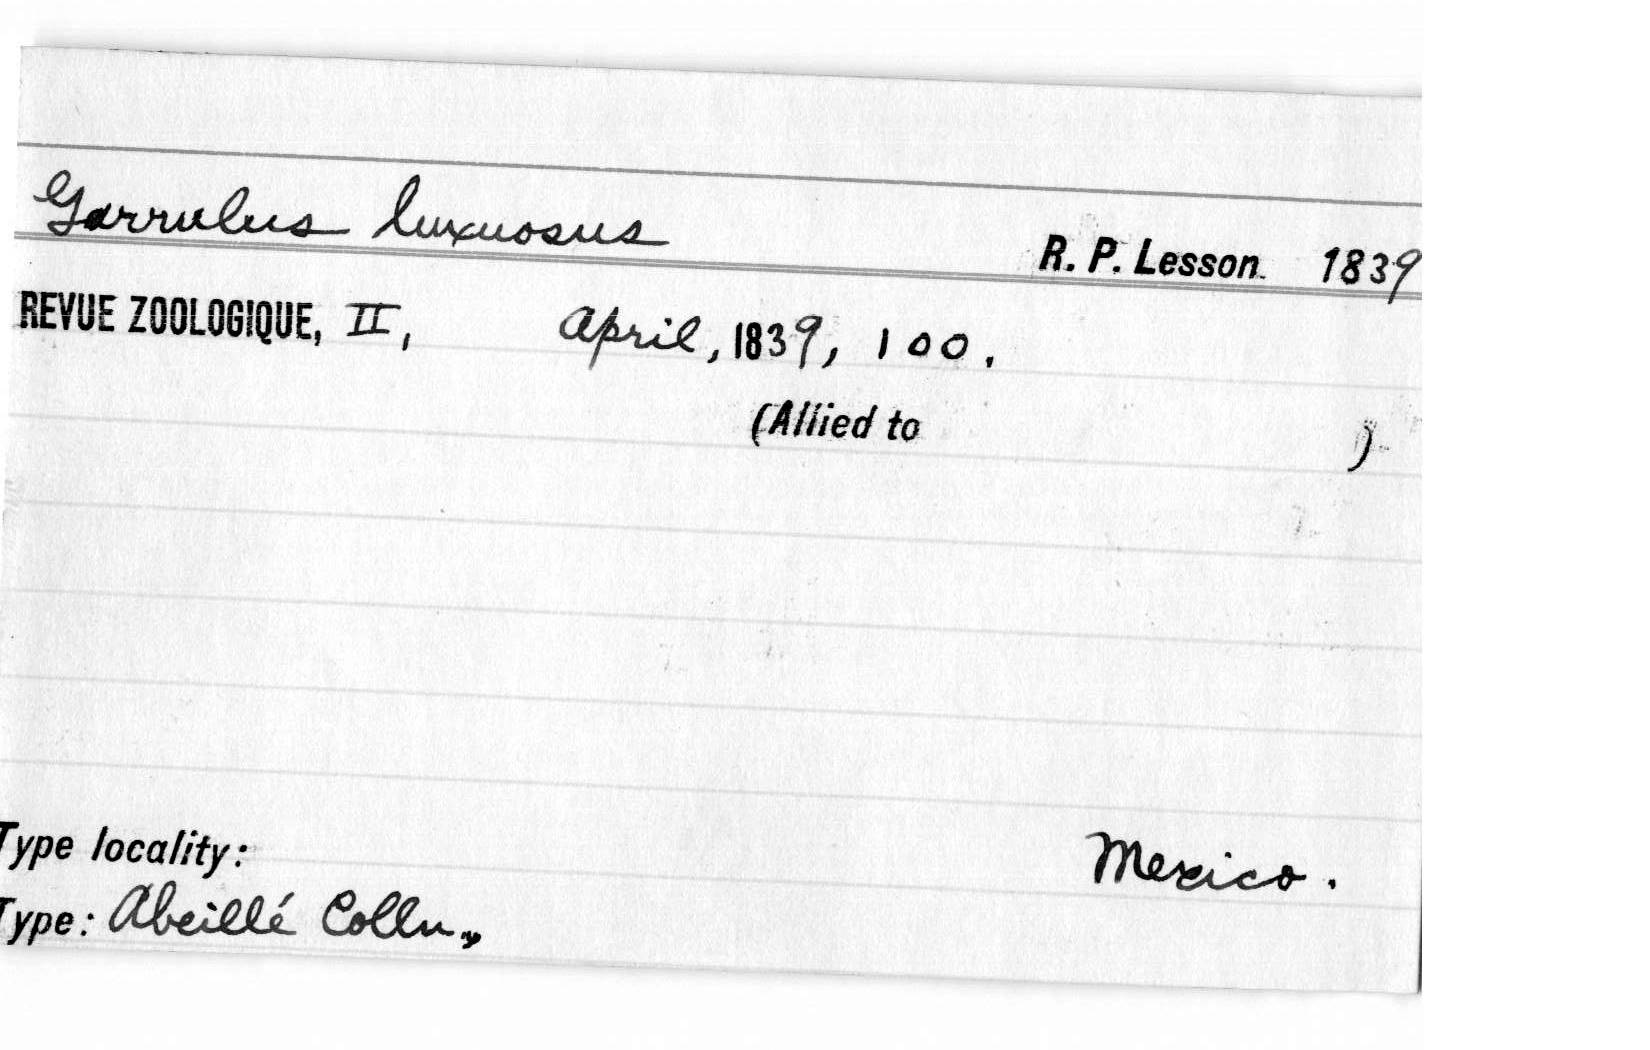 Garrulus luxuosus R. P. Lesson. 1839
REVUE ZOOLOGIQUE, II, April, 1839, 100.
(Allied to )
Type locality: Mexico.
Type: Abeillé Colln.,